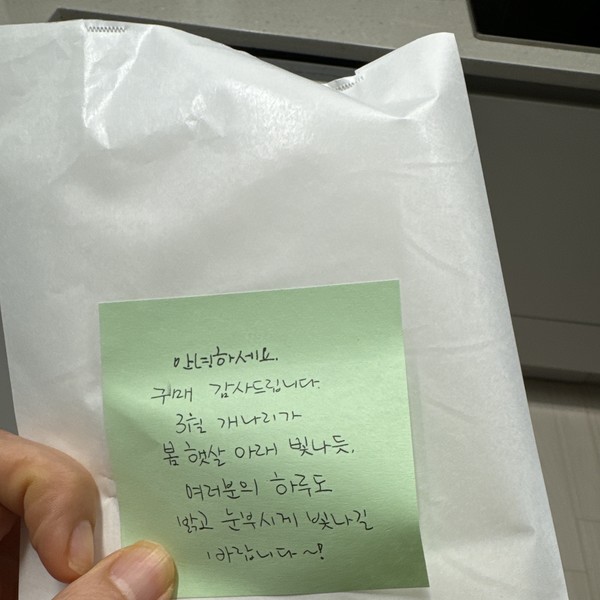 안녕하세요.
구매 감사드립니다.
3월 개나리가
봄 햇살 아래 빛나듯,
여러분의 하루도
맑고 눈부시게 빛나길
바랍니다~!